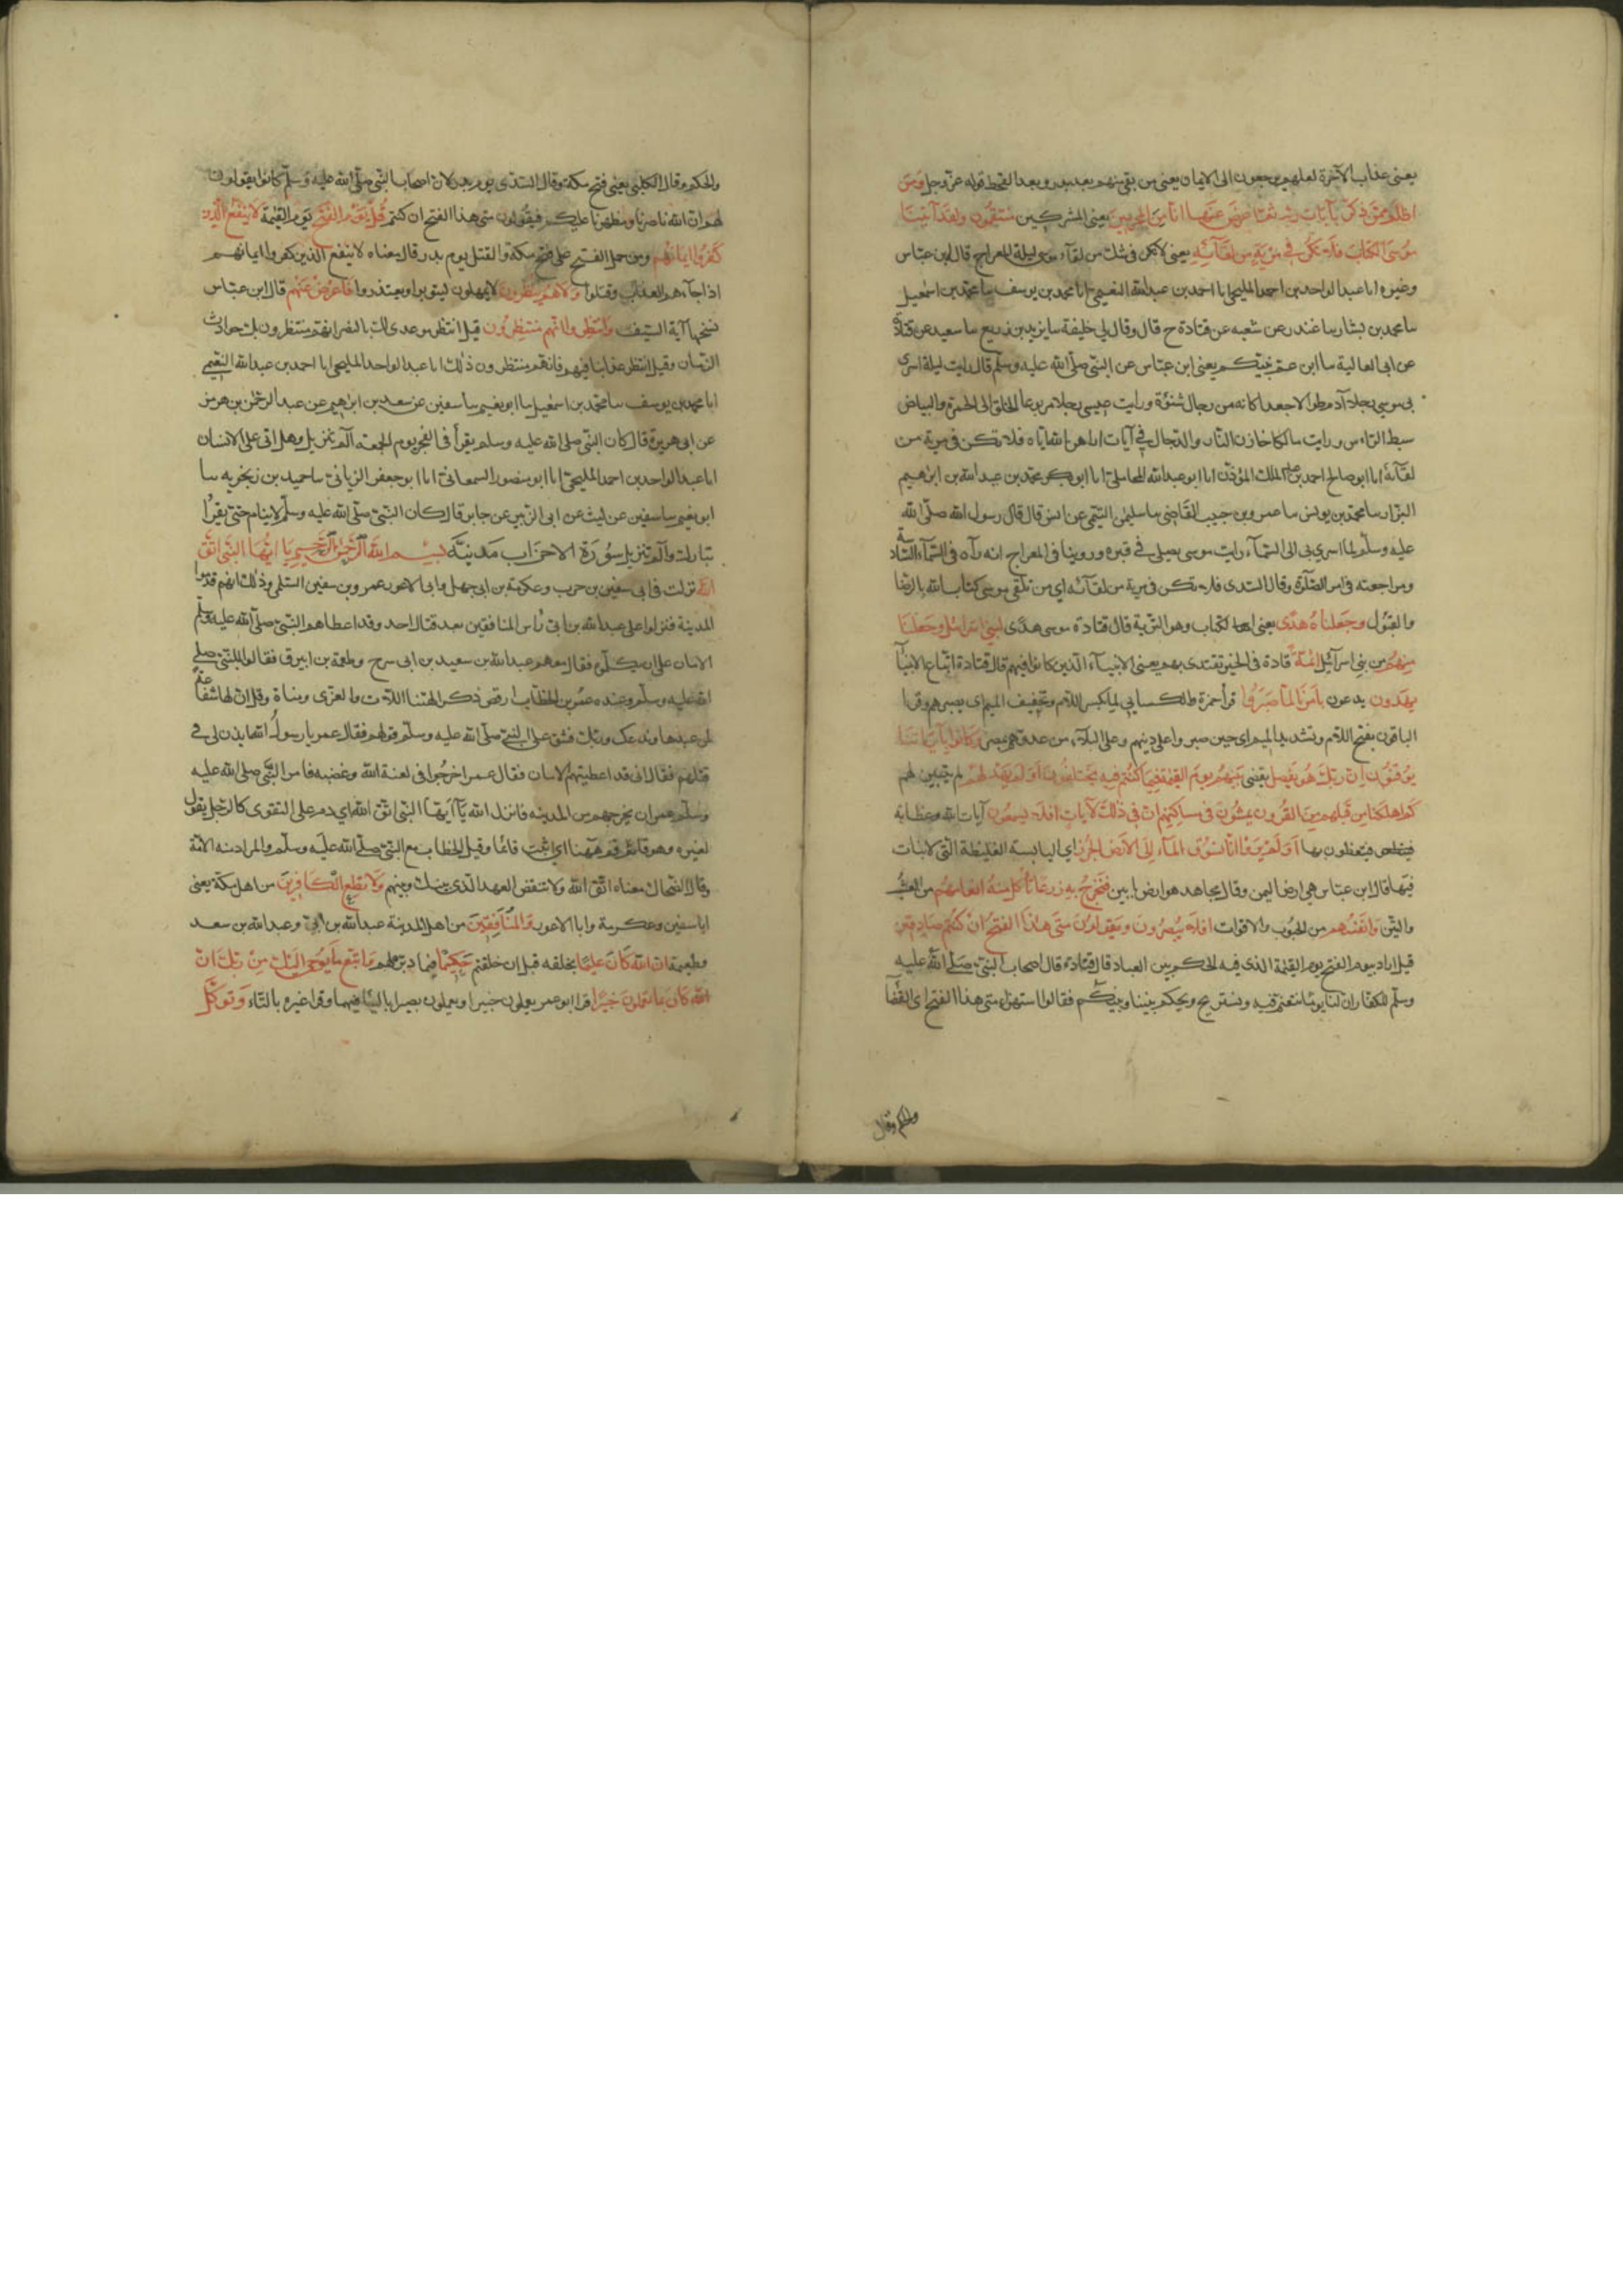 يعنى عذاب الآخرة لعلهم يرجعون الى الايمان يعنى من بقى منهم بعد بدر وبعد القحط قوله عز وجل ومن
اظلم ممن ذكر بآيات ربه ثم اعرض عنها انا من المجرمين يعنى المشركين منتقمون ولقد آتينا
موسى الكتاب فلا تكن فى مرية من لقآئه يعنى لا تكن فى شك من لقآء موسى ليلة المعراج قال ابن عباس
وغيره انا عبد الواحد بن احمد المليحى انا احمد بن عبد الله النعيمى انا محمد بن يوسف سا محمد بن اسمعيل
سا محمد بن بشار سا غندر عن شعبه عن قتادة ح قال وقال لى خليفة سا يزيد بن زريع سا سعيد عن قتادة
عن ابى العالية سا ابن عم نبيكم يعنى ابن عباس عن النبى صلى الله عليه وسلم قال رايت ليلة اسرى
بى موسى رجلا آدم طوالا جعدا كانه من رجال شنوة ورايت عيسى رجلا مربوعا الخلق الى الحمرة والبياض
سبط الراس ورايت مالكا خازن النار والدجال فى آيات اراهن الله اياه فلا تكن فى مرية من
لقآئه انا ابو صالح احمد بن عبد الملك المؤذن انا ابو عبد الله المحاملى انا ابو بكر محمد بن عبد الله بن ابرهيم
البزار سا محمد بن يونس سا عمرو بن حبيب القاضى سا سليمن التيمى عن انس قال قال رسول الله صلى الله
عليه وسلم لما اسرى بى الى السمآء رايت موسى يصلى فى قبره وروينا فى المعراج انه رآه فى السمآء السادسة
ومراجعته فى امر الصلوة وقال السدى فلا تكن فى مرية من لقآئه اى من تلقى موسى كتاب الله بالرضا
والقبول وجعلناه هدى يعنى الكتاب وهو التورية قال قتادة موسى هدى لبنى اسرائيل وجعلنا
منهم من بنى اسرآئيل ائمة قادة فى الخير يقتدى بهم يعنى الانبيآء الذين كانوا فيهم قال قتادة اتباع الانبيآ
يهدون يدعون بامرنا لما صبروا قرأ حمزة والكسايى لما بكسر اللام وتخفيف الميم اى بصبرهم وقرا
الباقون بفتح اللام وتشديد الميم اى حين صبروا على دينهم وعلى البلآء من عدوهم بمصر وكانوا بآياتنا
يوقنون ان ربك هو يفصل يقضى بينهم يوم القيمة فيما كانوا فيه يختلفون اولم يهد لهم لم يتبين لهم
كم اهلكنا من قبلهم من القرون يمشون فى مساكنهم ان فى ذلك لآيات افلا يسمعون آيات الله وعظاته
فيتعظون بها اولم يروا انا نسوق المآء الى الارض الجرز اى اليابسة الغليظة التى لا نبات
فيها قال ابن عباس هى ارض اليمن وقال مجاهد هو ارض ابين فنخرج به زرعا تأكل منه انعامهم من العشب
والتبن وانفسهم من الحبوب والاقوات افلا يبصرون ويقولون متى هذا الفتح ان كنتم صادقين
قيل اراد بيوم الفتح يوم القيمة الذى فيه الحكم بين العباد قال قتادة قال اصحاب النبى صلى الله عليه
وسلم للكفار ان لنا يوما نتنعم فيه ونستريح ويحكم بيننا وبينكم فقالوا استهزاء متى هذا الفتح اى القضآ
والحكم وقال
والحكم وقال الكلبى يعنى فتح مكة وقال السدى يوم بدر لان اصحاب النبى صلى الله عليه وسلم كانوا يقولون
لهم ان الله ناصرنا ومظهرنا عليكم فيقولون متى هذا الفتح ان كنتم قل يوم الفتح يوم القيمة لا ينفع الذين
كفروا ايمانهم ومن حمل الفتح على فتح مكة والقتل يوم بدر قال معناه لا ينفع الذين كفروا ايمانهم
اذا جآءهم العذاب وقتلوا ولا هم ينظرون لا يمهلون ليتوبوا ويعتذروا فاعرض عنهم قال ابن عباس
نسخها آية السيف وانتظر انهم منتظرون قيل انتظر موعدى لك بالنصر انهم منتظرون بك حوادث
الزمان وقيل انتظر عذابنا فيهم فانهم منتظرون ذلك انا عبد الواحد المليحى انا احمد بن عبد الله النعيمى
انا محمد بن يوسف سا محمد بن اسمعيل سا ابو نعيم سا سفين عن سعد بن ابرهيم عن عبد الرحمن بن هرمز
عن ابى هريرة قال كان النبى صلى الله عليه وسلم يقرأ فى الفجر يوم الجمعة الم تنزيل وهل اتى على الانسان
انا عبد الواحد بن احمد المليحى انا ابو منصور السمعانى انا ابو جعفر الزيانى سا حميد بن زنجويه سا
ابو نعيم سا سفين عن ليث عن ابى الزبير عن جابر قال كان النبى صلى الله عليه وسلم لا ينام حتى يقرأ
تبارك والم تنزيل سورة الاحزاب مدنية بسم الله الرحمن الرحيم يا ايها النبى اتق
الله نزلت فى ابى سفين بن حرب وعكرمة بن ابى جهل وابى الاعور عمرو بن سفين السلمى وذلك انهم قدموا
المدينة فنزلوا على عبد الله بن ابى رأس المنافقين بعد قتال احد وقد اعطاهم النبى صلى الله عليه وسلم
الامان على ان يكلموه فقام معهم عبد الله بن سعيد بن ابى سرح وطعمة بن ابيرق فقالوا للنبى صلى
الله عليه وسلم وعنده عمر بن الخطاب ارفض ذكر الهتنا اللات والعزى ومناة وقل ان لها شفاعة
لمن عبدها وندعك وربك فشق على النبى صلى الله عليه وسلم قولهم فقال عمر يا رسول الله ايذن لى فى
قتلهم فقال انى قد اعطيتهم الامان فقال عمر اخرجوا فى لعنة الله وغضبه فامر النبى صلى الله عليه
وسلم عمر ان يخرجهم من المدينه فانزل الله يا ايها النبى اتق الله اى دم على التقوى كالرجل يقول
لغيره وهو قائم قم ههنا اى اثبت قائما وقيل الخطاب مع النبى صلى الله عليه وسلم والمراد منه الامة
وقال الضحاك معناه اتق الله ولا تنقض العهد الذى بينك وبينهم ولا تطع الكافرين من اهل مكة يعنى
ابا سفين وعكرمة وابا الاعور والمنافقين من اهل المدينة عبد الله بن ابى وعبد الله بن سعد
وطعيمة ان الله كان عليما بخلقه قبل ان خلقهم حكيما فيما دبره لهم واتبع ما يوحى اليك من ربك ان
الله كان بما تعملون خبيرا قرا ابو عمر يعملون خبيرا ويعملون بصيرا باليآ فيهما وقرا غيره بالتآء وتوكل